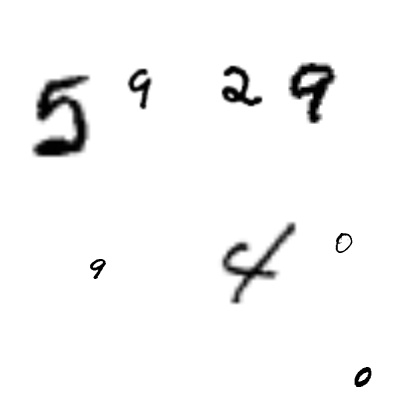 5 9 2 9
9 4 0
0